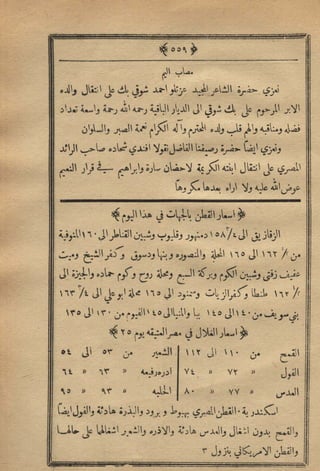 ﴿ ٥٥٩ ﴾
مصاب اليم
نعزي حضرة الشاعر المجيد عزتلو احمد شوقي بك على انتقال والده
الابر المرحوم علي بك شوقي الى الديار الباقية رحمه الله رحمة واسعة تعداد
فضله ومناقبه والهم قلب ولده المحترم وآله الكرام نعمة الصبر والسلوان
ونعزي ايضاً حضرة رصيفنا الفاضل نقولا افندي شحاده صاحب الرائد
المصري على انتقال ابنته الكريمة لاحضان سارة وابراهيم في قرار النعيم
عوض الله عليه ولا اراه بعدها مكروهاً
﴿ اسعار القطن بالجهات في هذا اليوم ﴾
الزقازيق الى ١٥٨ ٣/٤ دمنهور وقليوب وشبين القناطر الى ١٦٠ المنوفية
من ١٦٢ الى ١٦٥ المحلة والمنصوره وبنها ودسوق وكفر الشيخ وميت
عفيف زفتى وشبين الكوم وبركة السبع ومحلة روح وكوم حماده والجيزة الى
١٦٢ طنطا وكفر الزيات وسمنود الى ١٦٥ محلة ابو علي الى ١٦٣
بني سويف من ١٤٠ الى ١٤٥ ببا والمنيا الى ١٤٥ الفيوم من ١٣٠ الى ١٣٥
﴿ اسعار الغلال في مصر العتيقه يوم ٢٥ ﴾
القمح من ١١٠ الى ١١٢ الشعير من ٥٣ الى ٥٤
الفول » ٧٢ » ٧٤ اذره رفيعه » ٦٣ » ٦٤
العدس » ٧٧ » ٨٠ الحلبه » ٩٣ » ٩٥
اسكندرية ٠ القطن المصري بهبوط وبرود والبذرة هادئة والفول ايضاً
والقمح بدون اشغال والعدس هادئة والاذره والشعير اشغالها على حالها
والقطن الامريكاني بنزول ٣